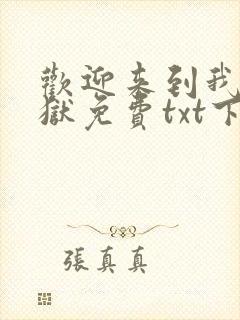 歡迎來到我
獄免費txt下
張真真